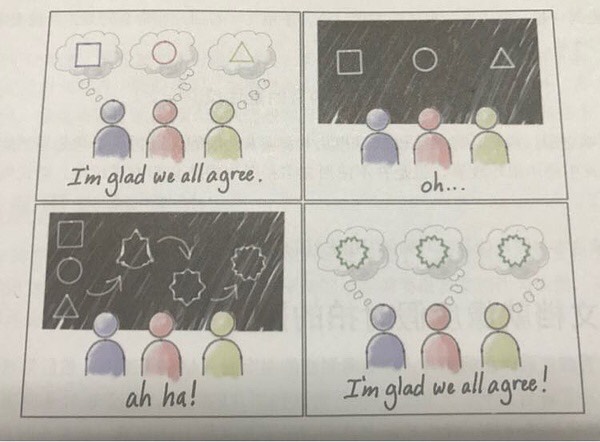 I'm glad we all agree.
oh...
ah ha!
I'm glad we all agree!